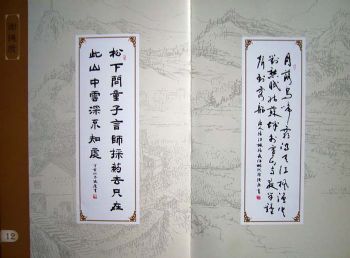 松下問童子言師採药去只在
此山中雲深不知處
月落烏啼霜滿天江楓漁火
對愁眠姑蘇城外寒山寺夜半鐘
聲到客船
12